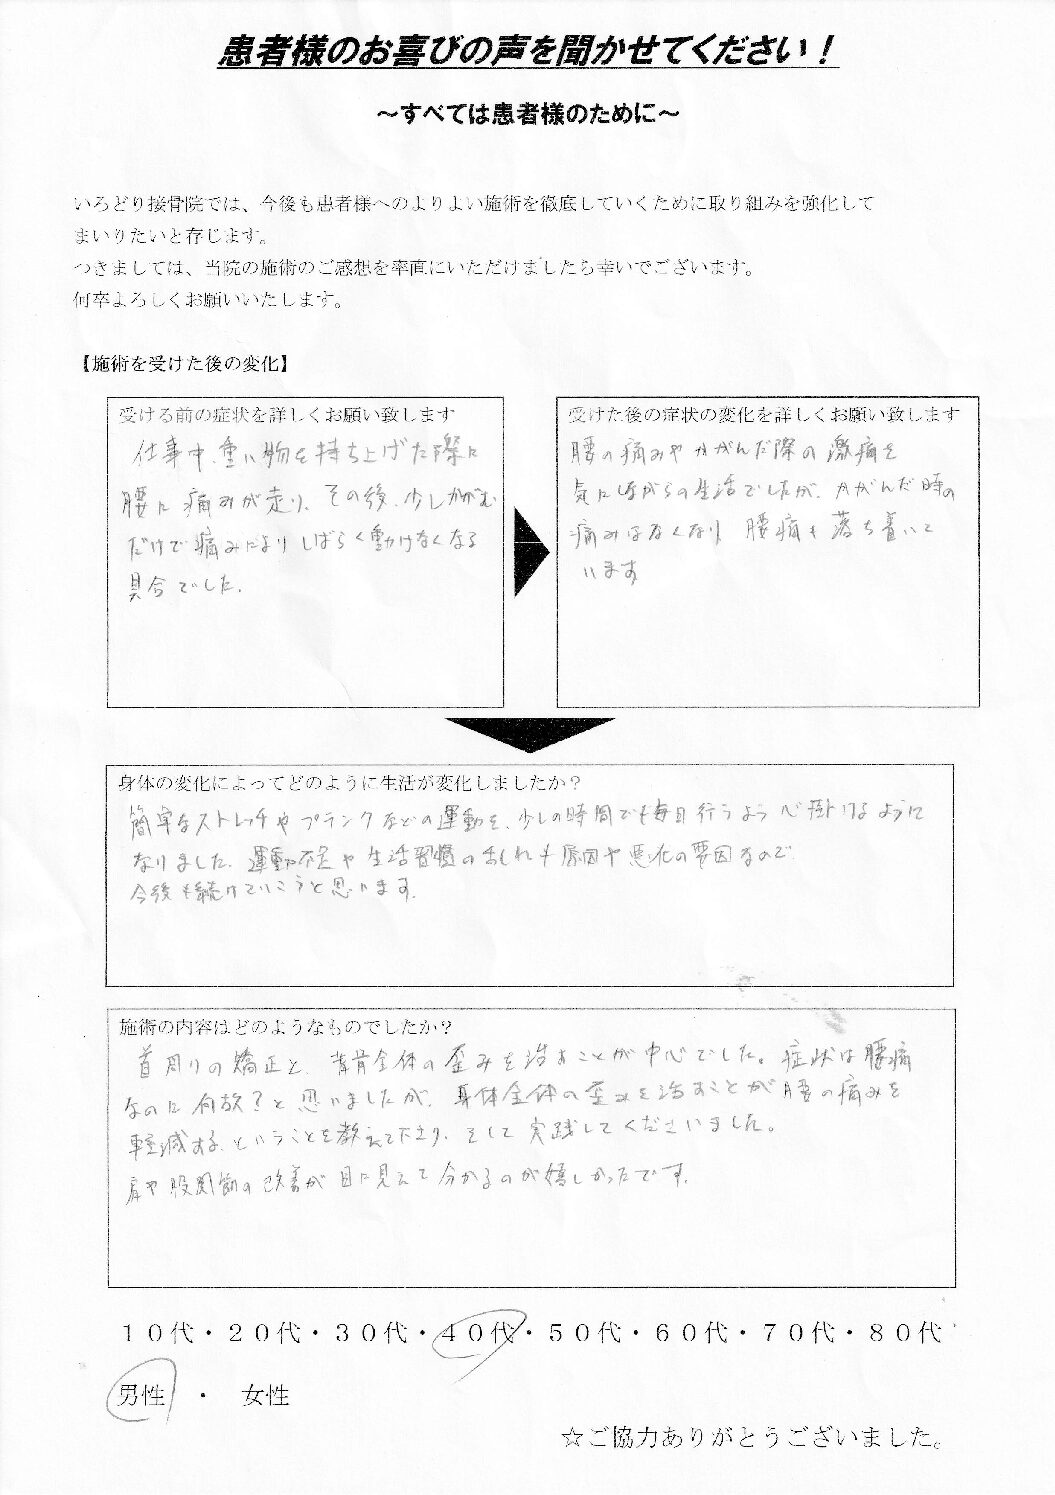 患者様のお喜びの声を聞かせてください！
～すべては患者様のために～
いろどり接骨院では、今後も患者様へのよりよい施術を徹底していくために取り組みを強化して
まいりたいと存じます。
つきましては、当院の施術のご感想を率直にいただけましたら幸いでございます。
何卒よろしくお願いいたします。
【施術を受けた後の変化】
受ける前の症状を詳しくお願い致します
仕事中、重い物を持ち上げた際に
腰に痛みが走り、その後、少しかがむ
だけで痛みによりしばらく動けなくなる
具合でした。
受けた後の症状の変化を詳しくお願い致します
腰の痛みやかがんだ際の激痛を
気にしながらの生活でしたが、かがんだ時の
痛みはなくなり 腰痛も落ち着いて
います
身体の変化によってどのように生活が変化しましたか？
簡単なストレッチやプランクなどの運動を、少しの時間でも毎日行うよう心掛けるように
なりました。運動不足や生活習慣の乱れも原因や悪化の要因なので
今後も続けていこうと思います。
施術の内容はどのようなものでしたか？
首周りの矯正と、背骨全体の歪みを治すことが中心でした。症状は腰痛
なのに何故？と思いましたが、身体全体の歪みを治すことが腰の痛みを
軽減する、ということを教えて下さり、そして実践してくださいました。
肩や股関節の改善が目に見えて分かるのが嬉しかったです。
１０代・２０代・３０代・４０代・５０代・６０代・７０代・８０代
男性 ・ 女性
☆ご協力ありがとうございました。